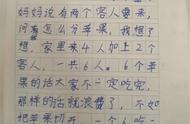 妈妈说有两个客人要来,
问有怎么分苹果,我想了
想,家里来4人加上2个
客人,一共6人。6个苹
果的话大家不一定吃完,
那样的话就浪费了,不如
把苹果切开,一个6吃一